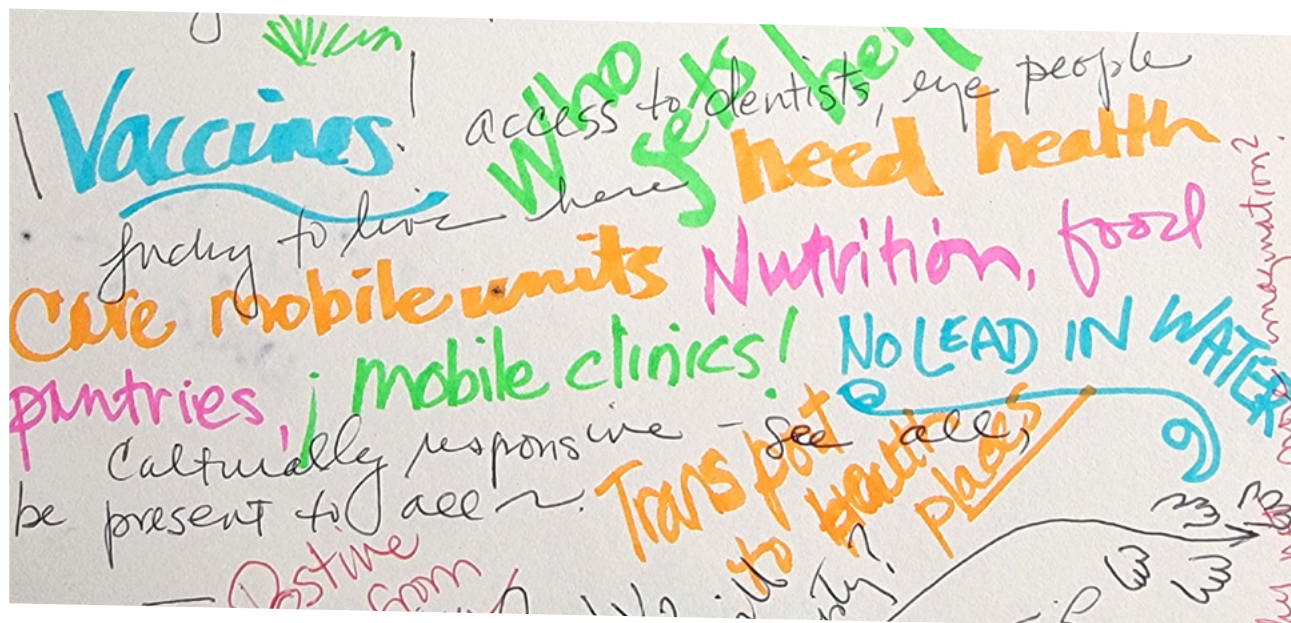 Who gets help
access to dentists, eye people
¡Vaccines!
need health
lucky to live here
Care mobile units
Nutrition, food
pantries,
¡mobile clinics!
NO LEAD IN WATER
Culturally responsive – see all,
be present to all ~.
Transport
to health
places
Postive
from
imagination?